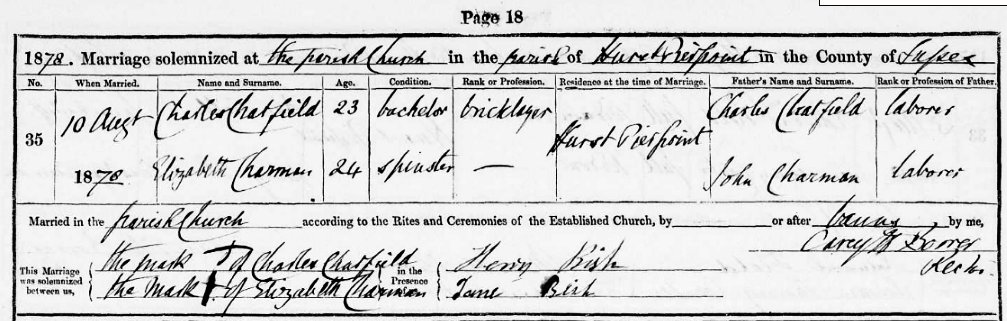 Page 18
1878. Marriage solemnized at the parish Church in the parish of Hurst Pierpoint in the County of Sussex
No. When Married. Name and Surname. Age. Condition. Rank or Profession. Residence at the time of Marriage. Father's Name and Surname. Rank or Profession of Father.
35 10 Augt 1878 Charles Chatfield 23 bachelor bricklayer Hurst Pierpoint Charles Chatfield laborer
Elizabeth Charman 24 spinster — John Charman laborer
Married in the parish Church according to the Rites and Ceremonies of the Established Church, by or after banns by me,
Carey H Borrer
Rector
This Marriage was solemnized between us, the mark of Charles Chatfield in the Presence Henry Bish
the mark of Elizabeth Charman of Jane Bish